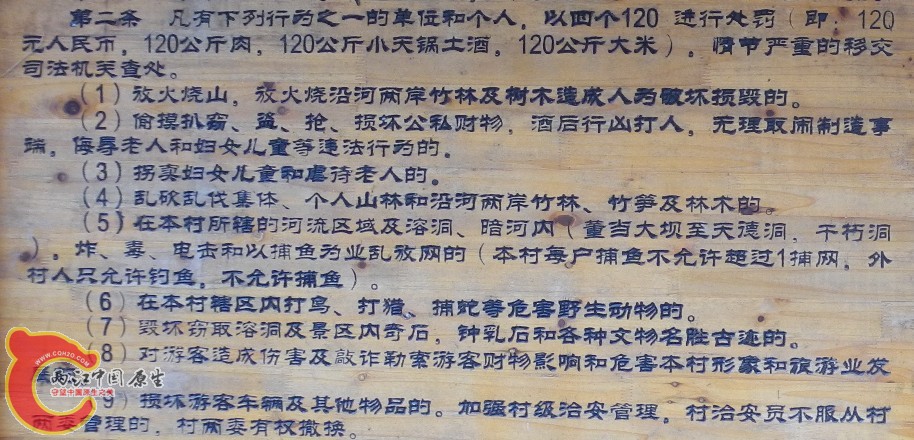 第二条 凡有下列行为之一的单位和个人，以四个120 进行处罚（即：120
元人民币，120公斤肉，120公斤小天锅土酒，120公斤大米）。情节严重的移交
司法机关查处。
（1）放火烧山，放火烧沿河两岸竹林及树木造成人为破坏损毁的。
（2）偷摸扒窃、盗、抢、损坏公私财物，酒后行凶打人，无理取闹制造事
端，侮辱老人和妇女儿童等违法行为的。
（3）拐卖妇女儿童和虐待老人的。
（4）乱砍乱伐集体、个人山林和沿河两岸竹林、竹笋及林木的。
（5）在本村所辖的河流区域及溶洞、暗河内（董当大坝至天德洞，干朽洞
）。炸、毒、电击和以捕鱼为业乱放网的（本村每户捕鱼不允许超过1捕网，外
村人只允许钓鱼，不允许捕鱼）。
（6）在本村辖区内打鸟、打猎、捕蛇等危害野生动物的。
（7）毁坏窃取溶洞及景区内奇石，钟乳石和各种文物名胜古迹的。
（8）对游客造成伤害及敲诈勒索游客财物影响和危害本村形象和旅游业发
9）损坏游客车辆及其他物品的。加强村级治安管理，村治安员不服从村
两委管理的，村两委有权撤换。
WWW.CQHZO.COM
两江中国原生
守望中国原生之美